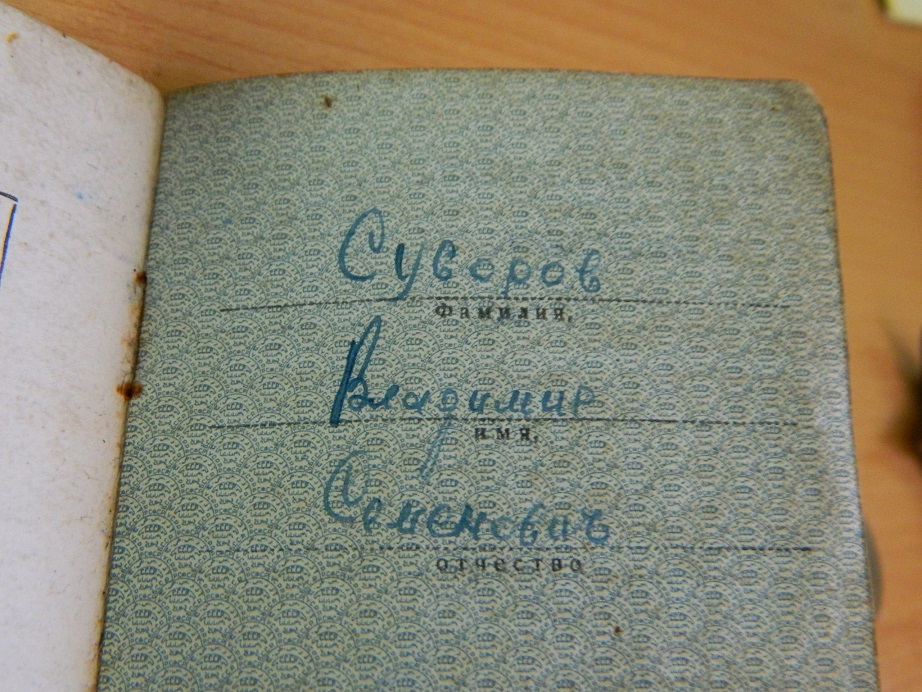 Суворов
фамилия,
Владимир
имя,
Семенович
отчество